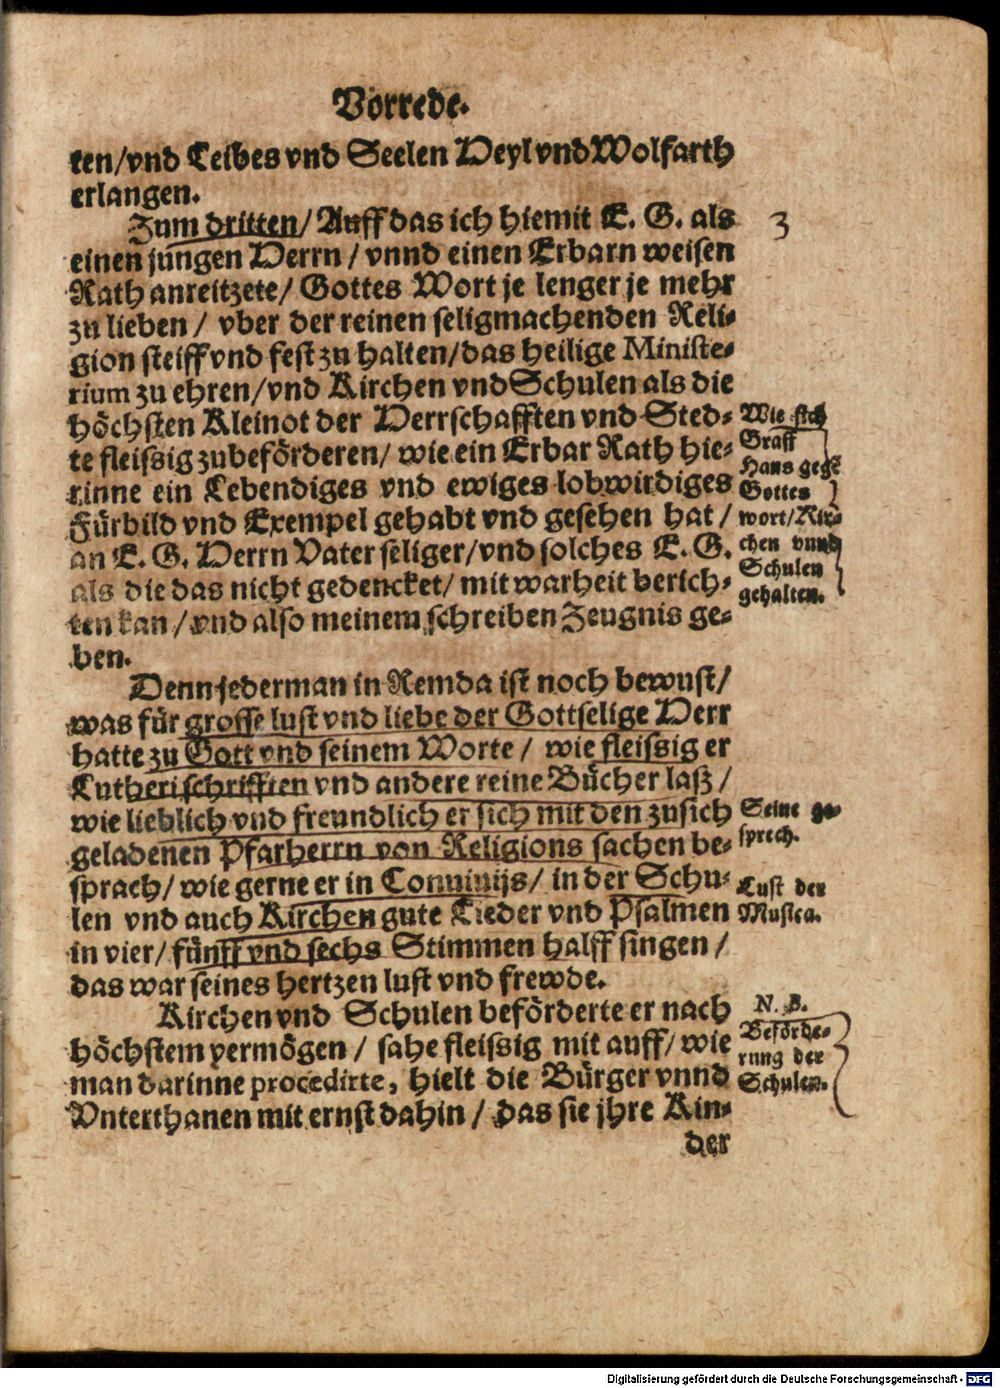 Vorrede.
ten/vnd Leibes vnd Seelen Heyl vnd Wolfarth
erlangen.
Zum dritten/ Auff das ich hiemit E. G. als
3
einen jungen Herrn / vnnd einen Erbarn weisen
Rath anreitzete/ Gottes Wort je lenger je mehr
zu lieben / vber der reinen seligmachenden Reli-
gion steiff vnd fest zu halten/das heilige Ministe-
rium zu ehren/vnd Kirchen vnd Schulen als die
höchsten Kleinot der Herrschafften vnd Sted-
te fleissig zubeförderen/ wie ein Erbar Rath hie-
rinne ein Lebendiges vnd ewiges lobwirdiges
Fürbild vnd Exempel gehabt vnd gesehen hat /
an E. G. Herrn Vater seliger/vnd solches E. G.
als die das nicht gedencket/ mit warheit berich-
ten kan / vnd also meinem schreiben Zeugnis ge-
ben.
Wie sich
Graff
Hans gegē
Gottes
wort/Kir-
chen vnnd
Schulen
gehalten.
Denn jederman in Remda ist noch bewust/
was für grosse lust vnd liebe der Gottselige Herr
hatte zu Gott vnd seinem Worte / wie fleissig er
Lutheri schrifften vnd andere reine Bücher laß /
wie lieblich vnd freundlich er sich mit den zu sich
geladenen Pfarherrn von Religions sachen be-
sprach/ wie gerne er in Conuiuijs/ in der Schu-
len vnd auch Kirchen gute Lieder vnd Psalmen
in vier/ fünff vnd sechs Stimmen halff singen /
das war seines hertzen lust vnd frewde.
Seine ge-
sprech.
Lust der
Musica.
Kirchen vnd Schulen beförderte er nach
höchstem vermögen / sahe fleissig mit auff/ wie
man darinne procedirte, hielt die Bürger vnnd
Vnterthanen mit ernst dahin / das sie jhre Kin-
der
N. B.
Beförde-
rung der
Schulen.
Digitalisierung gefördert durch die Deutsche Forschungsgemeinschaft - DFG